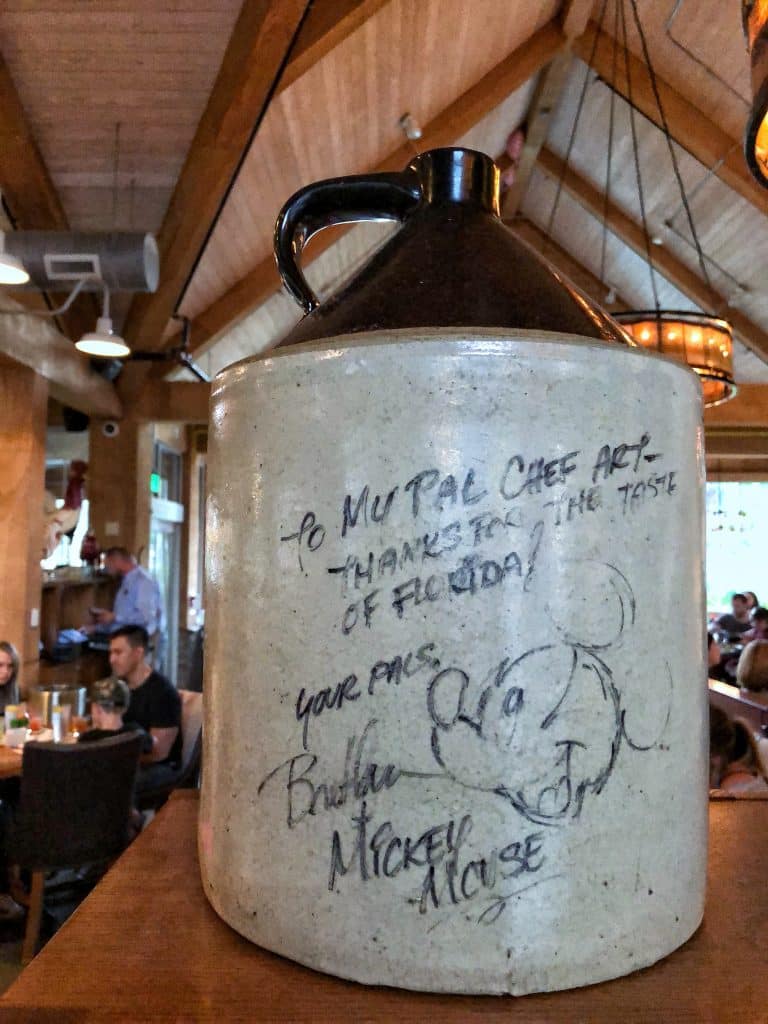 To MY PAL CHEF ART-
THANKS FOR THE TASTE
OF FLORIDA!
YOUR PALS,
MICKEY
MOUSE